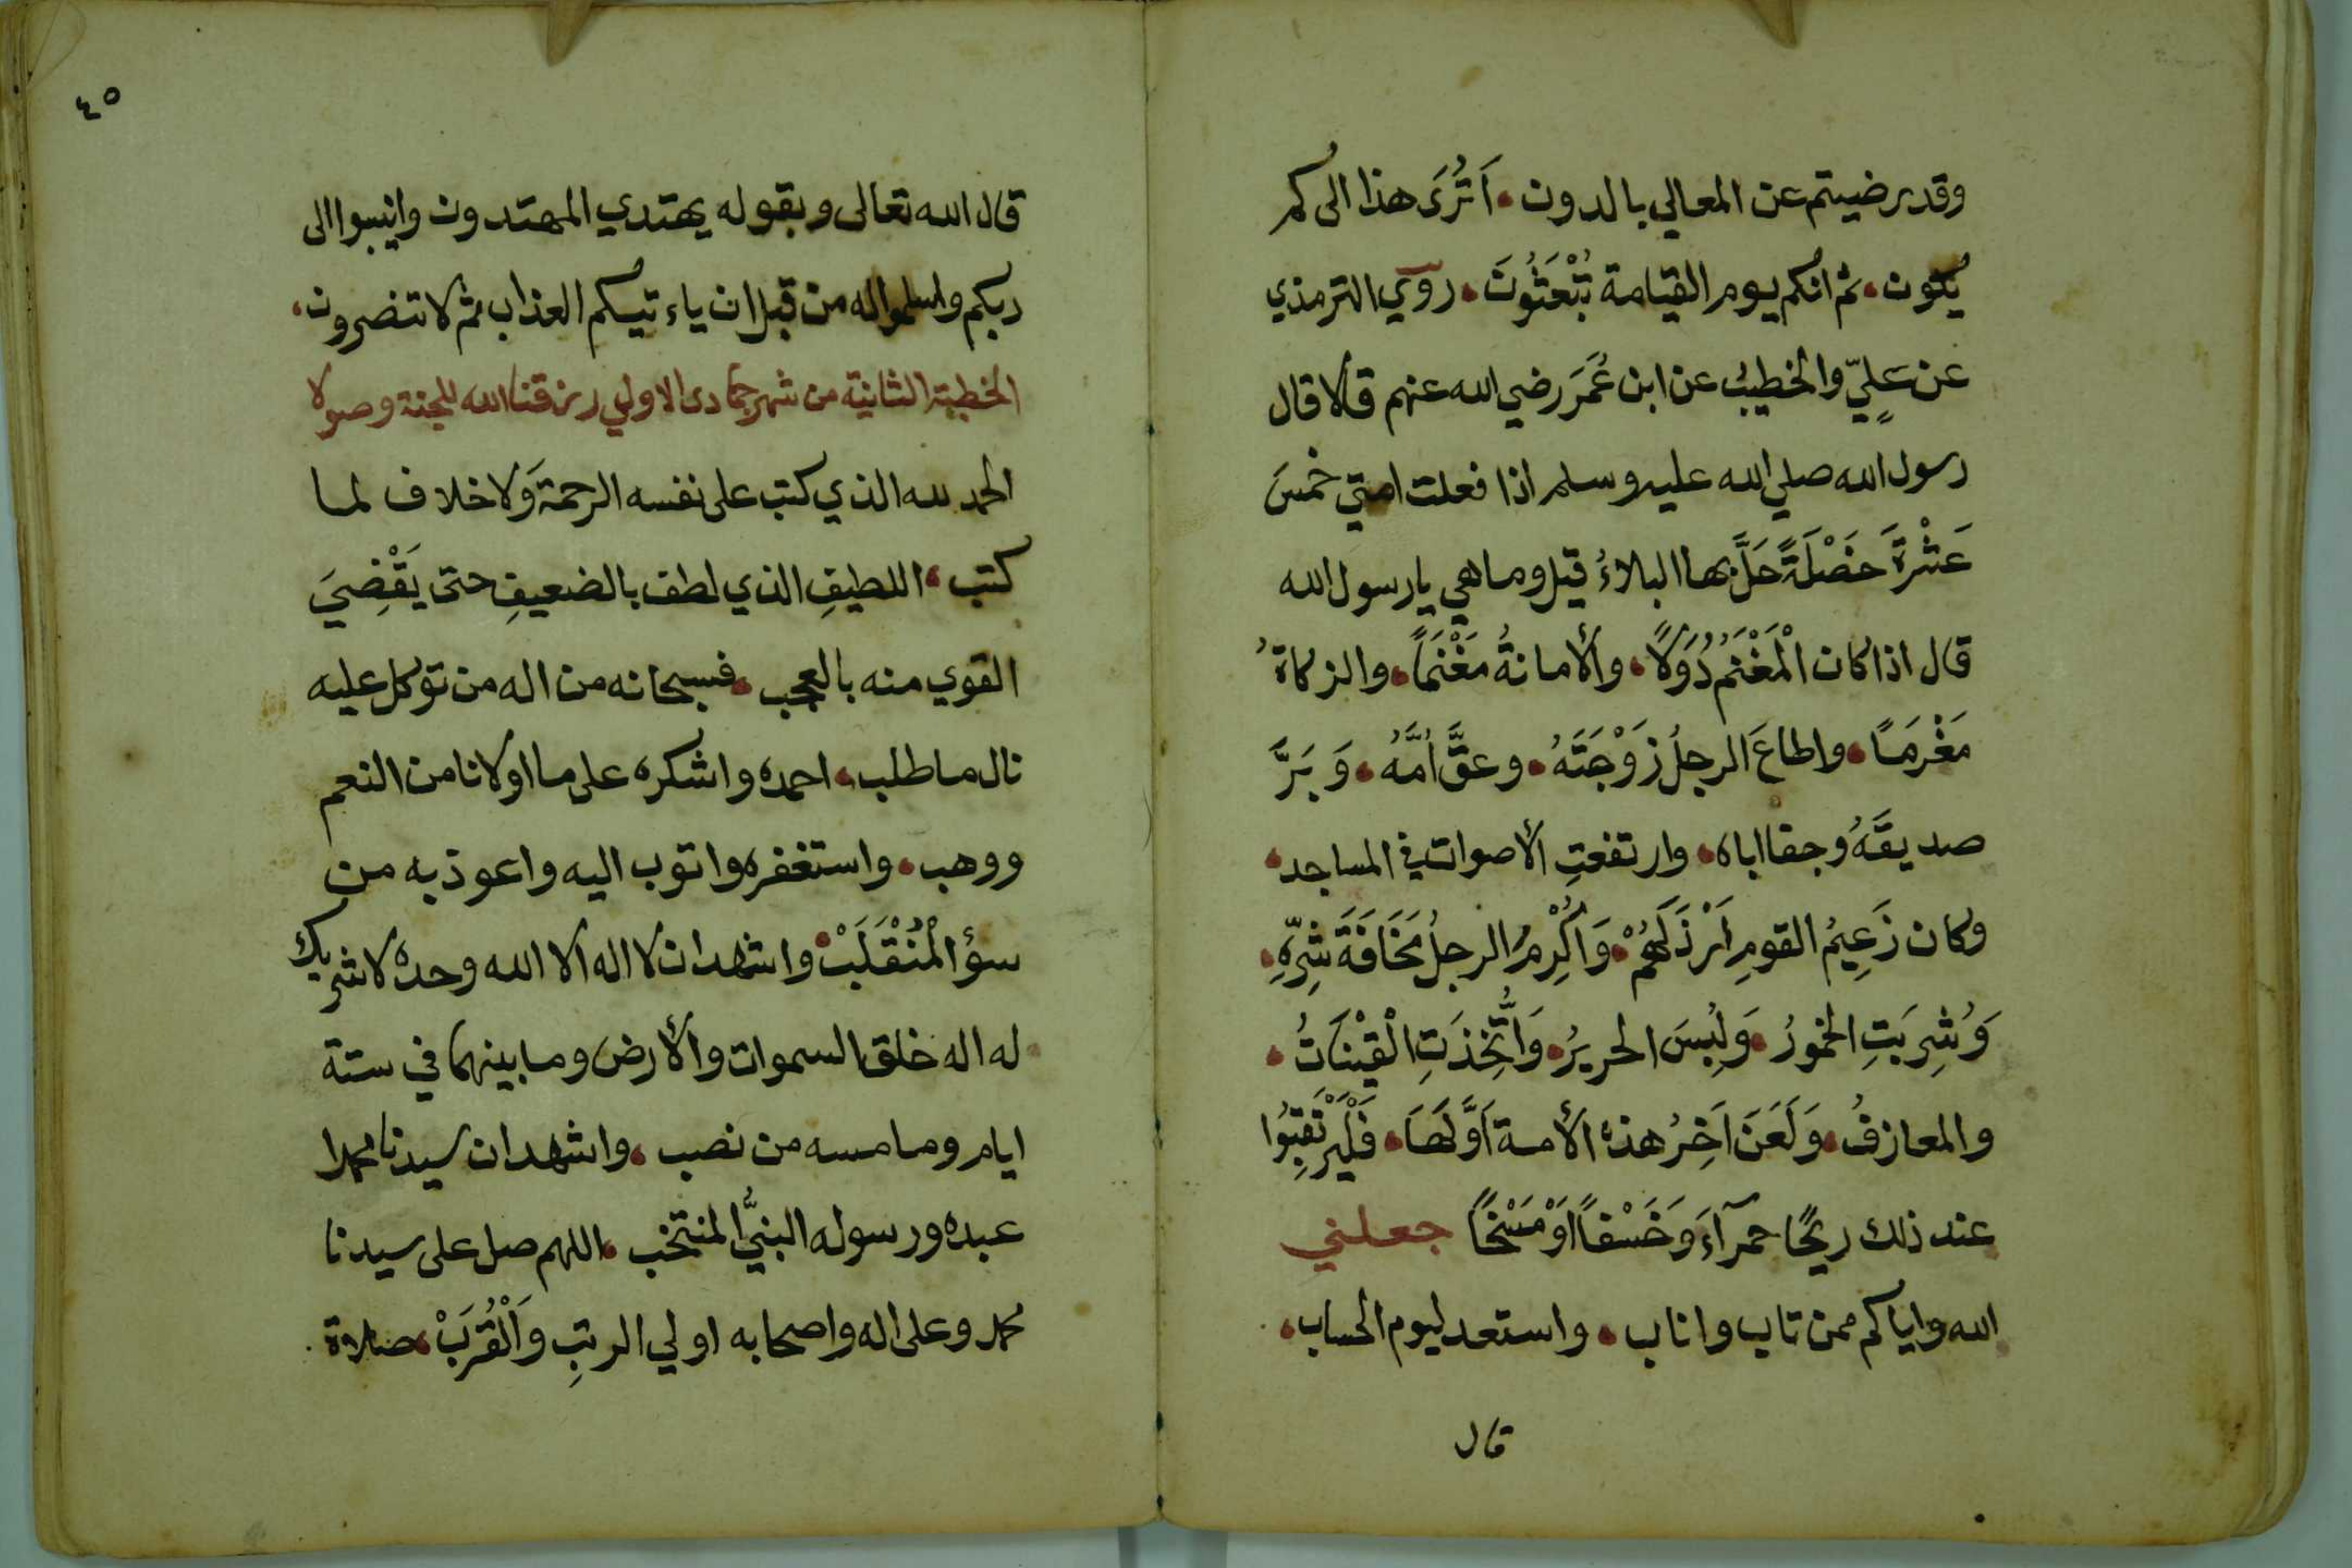 وقد رضيتم عن المعالي بالدون، اَتُرَى هذا الى كم
يكون، ثم انكم يوم القيامة تُبْعَثُونَ، روي الترمذي
عن عَلِيّ والخطيبُ عن ابن عُمَرَ رضي الله عنهم قالا قال
رسول الله صلي الله عليه وسلم اذا فعلت امتي خمسَ
عَشْرَةَ خَصْلَةً حَلَّ بها البلاءُ قيل وما هي يا رسول الله
قال اذا كان الْمَغْنَمُ دُوَلًا، والأمانةُ مَغْنَمًا، والزكاةُ
مَغْرَمًا، واطاعَ الرجلُ زَوْجَتَهُ، وعقَّ اُمَّهُ، وَبَرَّ
صديقَهُ وجفا اباه، وارتفعتِ الأصوات في المساجد،
وكان زَعِيمُ القومِ اَرْذَلَهُمْ، وَاُكْرِمُ الرجلُ مَخَافَةَ شَرِّهِ،
وَشُرِبَتِ الخمورُ، وَلُبِسَ الحريرُ، وَاتُّخِذَتِ الْقَيْنَاتُ،
والمعازفُ، وَلَعَنَ اَخِرُ هذه الأمة اَوَّلَهَا، فَلْيَرْتَقِبُوا
عند ذلك ريحًا حمرآءَ وَخَسْفًا اَوْ مَسْخًا جعلني
الله واياكم ممن تاب واناب، واستعد ليوم الحساب،
قال
٤٥
قال الله تعالى وبقوله يهتدي المهتدون وانيبوا الى
ربكم واسلموا له من قبل ان ياءتيكم العذاب ثم لا تنصرون،
الخطبة الثانية من شهر جمادى الاولي رزقنا الله للجنة وصولا
الحمد لله الذي كتب على نفسه الرحمة وَلا خلاف لما
كتب، اللطيفِ الذي لطف بالضعيفِ حتى يَقْضِيَ
القوي منه بالعجب، فسبحانه من اله من توكل عليه
نال ما طلب، احمده واشكره على ما اولانا من النعم
ووهب، واستغفره واتوب اليه واعوذ به من
سؤ الْمُنْقَلَبْ، واشهد ان لا اله الا الله وحده لا شريك
له اله خلق السموات والأرض وما بينهما في ستة
ايام وما مسه من نصب، واشهد ان سيدنا محمدا
عبده ورسوله النبيُّ المنتخب، اللهم صل على سيدنا
محمد وعلى اله واصحابه اولي الرتبِ وَالْقُرَبْ، صلاة